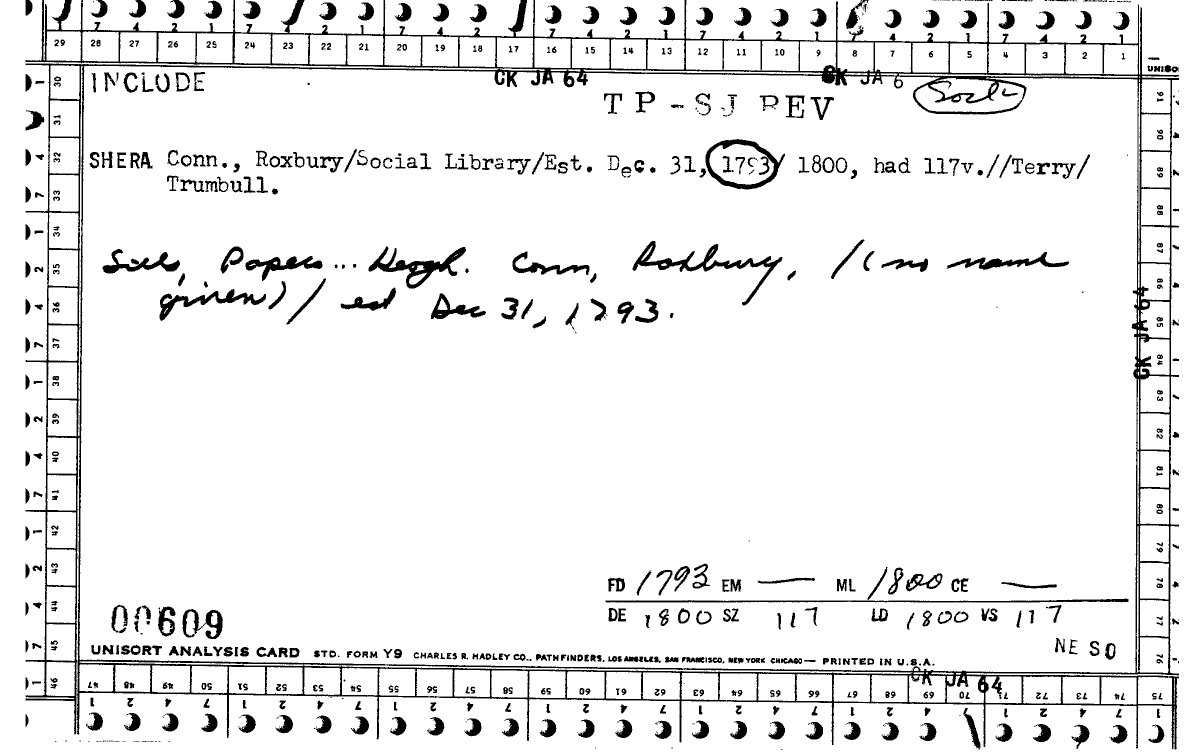 7 4 2 1 7 4 2 1 7 4 2 1 7 4 2 1 7 4 2 1 7 4 2 1
29 28 27 26 25 24 23 22 21 20 19 18 17 16 15 14 13 12 11 10 9 8 7 6 5 4 3 2 1
INCLUDE CK JA 64 CK JA 6
TP-SJ REV
SHERA Conn., Roxbury/Social Library/Est. Dec. 31, 1793/ 1800, had 117v.//Terry/
Trumbull.
Papers... Conn, Roxbury, /(no name
given)/ est Dec 31, 1793.
CK JA 64
FD 1793 EM — ML 1800 CE —
DE 1800 SZ 117 LD 1800 VS 117
00609
NE SO
UNISORT ANALYSIS CARD STD. FORM Y9 CHARLES R. HADLEY CO., PATHFINDERS, LOS ANGELES, SAN FRANCISCO, NEW YORK CHICAGO — PRINTED IN U.S.A.
CK JA 64
47 48 49 50 51 52 53 54 55 56 57 58 59 60 61 62 63 64 65 66 67 68 69 70 71 72 73 74 75
1 2 4 7 1 2 4 7 1 2 4 7 1 2 4 7 1 2 4 7 1 2 4 7 1 2 4 7 1
30 31 32 33 34 35 36 37 38 39 40 41 42 43 44 45 46
91 90 89 88 87 86 85 84 83 82 81 80 79 78 77 76